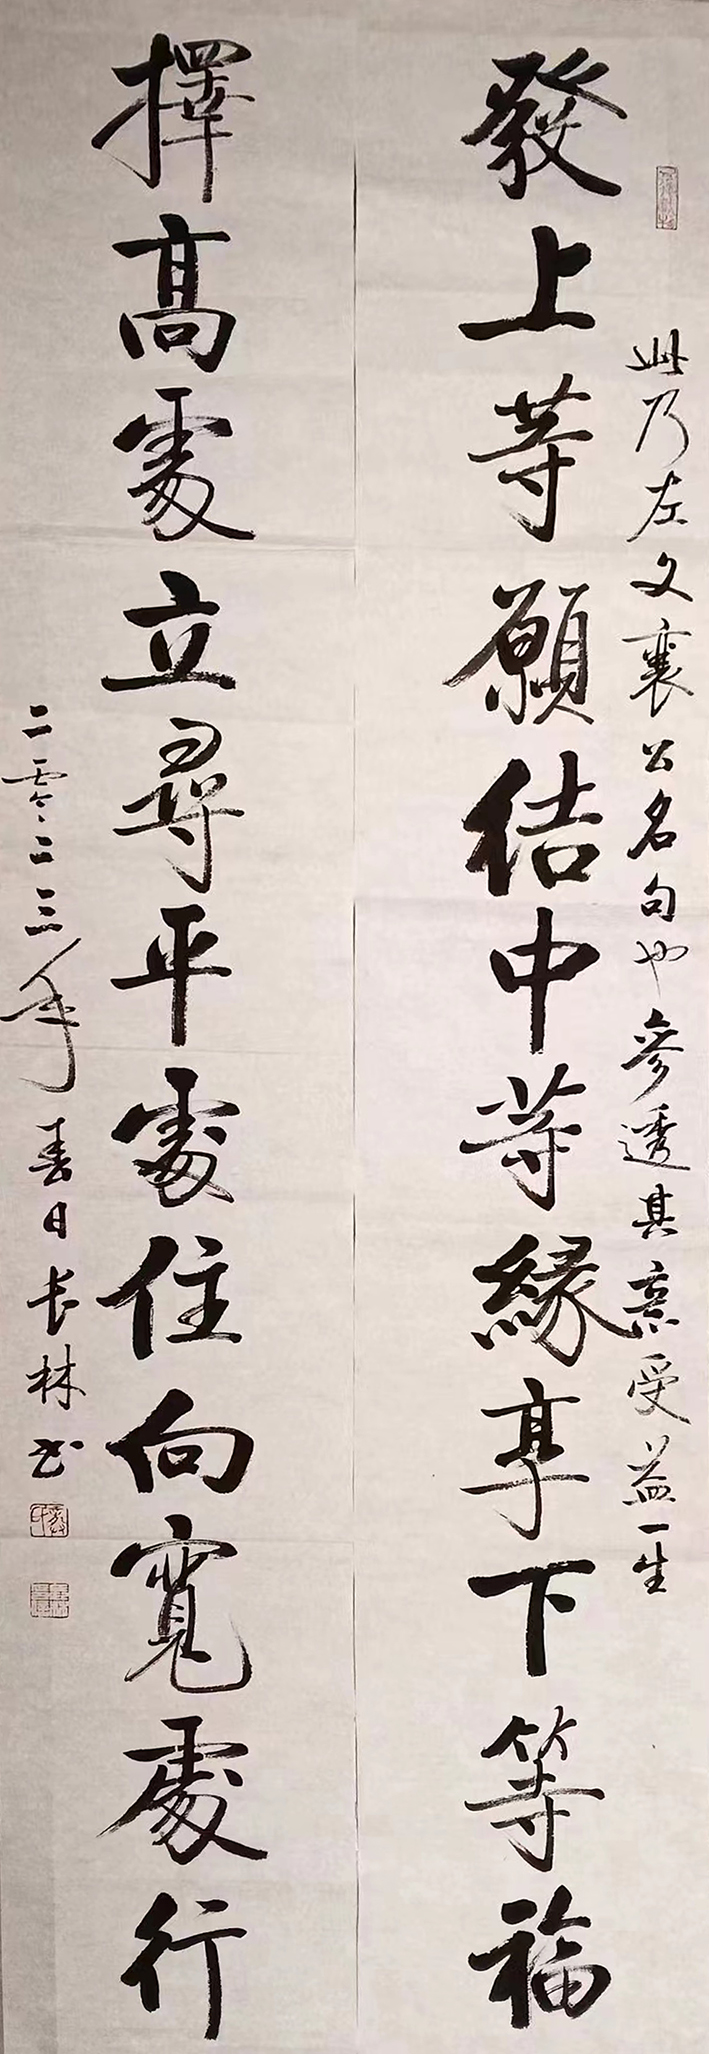 此乃左文襄公名句也參透其意受益一生
發上等願結中等緣享下等福
擇高處立尋平處住向寬處行
二零二三年春日長林書